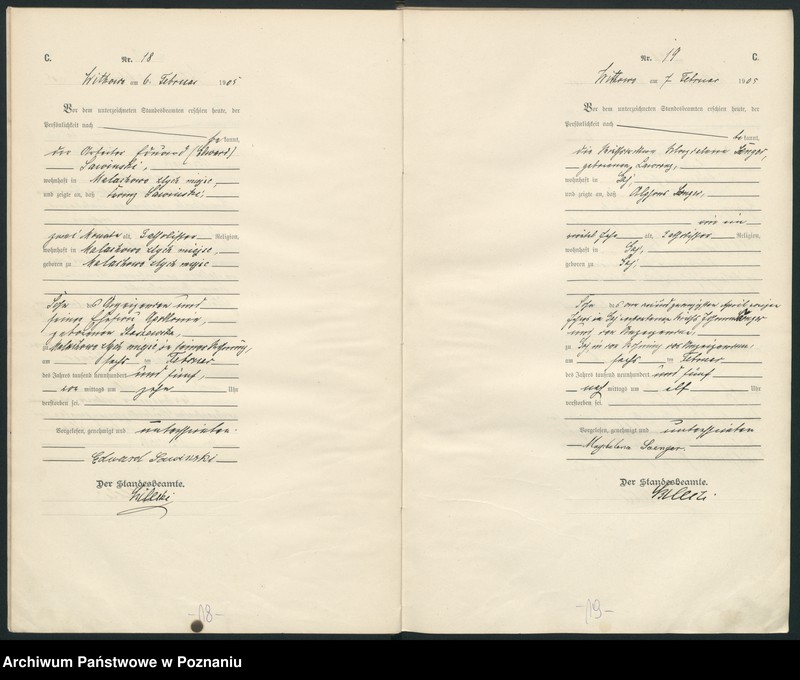 C.
Nr. 18
Witkowo am 6. Februar 1905
Vor dem unterzeichneten Standesbeamten erschien heute, der
Persönlichkeit nach
be kannt,
der Arbeiter Eduard
Sawinski,
wohnhaft in Malachowo złych miejsc,
und zeigte an, daß Sawinski,
zwei Monate alt, katholischer Religion,
wohnhaft in Malachowo złych miejsc,
geboren zu Malachowo złych miejsc
Sohn des Anzeigenden und
seiner Ehefrau Apolonia,
geborenen
Malachowo złych miejsc in seiner Wohnung,
am sechs ten Februar
des Jahres tausend neunhundert und fünf,
vor mittags um zehn Uhr
verstorben sei.
Vorgelesen, genehmigt und unterschrieben.
Eduard Sawinski
Der Standesbeamte.
-18-
Nr. 19
C.
Witkowo am 7. Februar 1905
Vor dem unterzeichneten Standesbeamten erschien heute, der
Persönlichkeit nach
be kannt,
die Magdalena Sänger,
geborene Lawrenz,
wohnhaft in
und zeigte an, daß Alphons Sänger,
alt, katholischer Religion,
wohnhaft in
geboren zu
Sohn des am neunundzwanzigsten April vorigen
Sänger
und der Anzeigenden
zu in der Wohnung der Anzeigenden
am sechs ten Februar
des Jahres tausend neunhundert und fünf
nach mittags um elf Uhr
verstorben sei.
Vorgelesen, genehmigt und unterschrieben
Magdalena Saenger.
Der Standesbeamte.
-19-
Archiwum Państwowe w Poznaniu